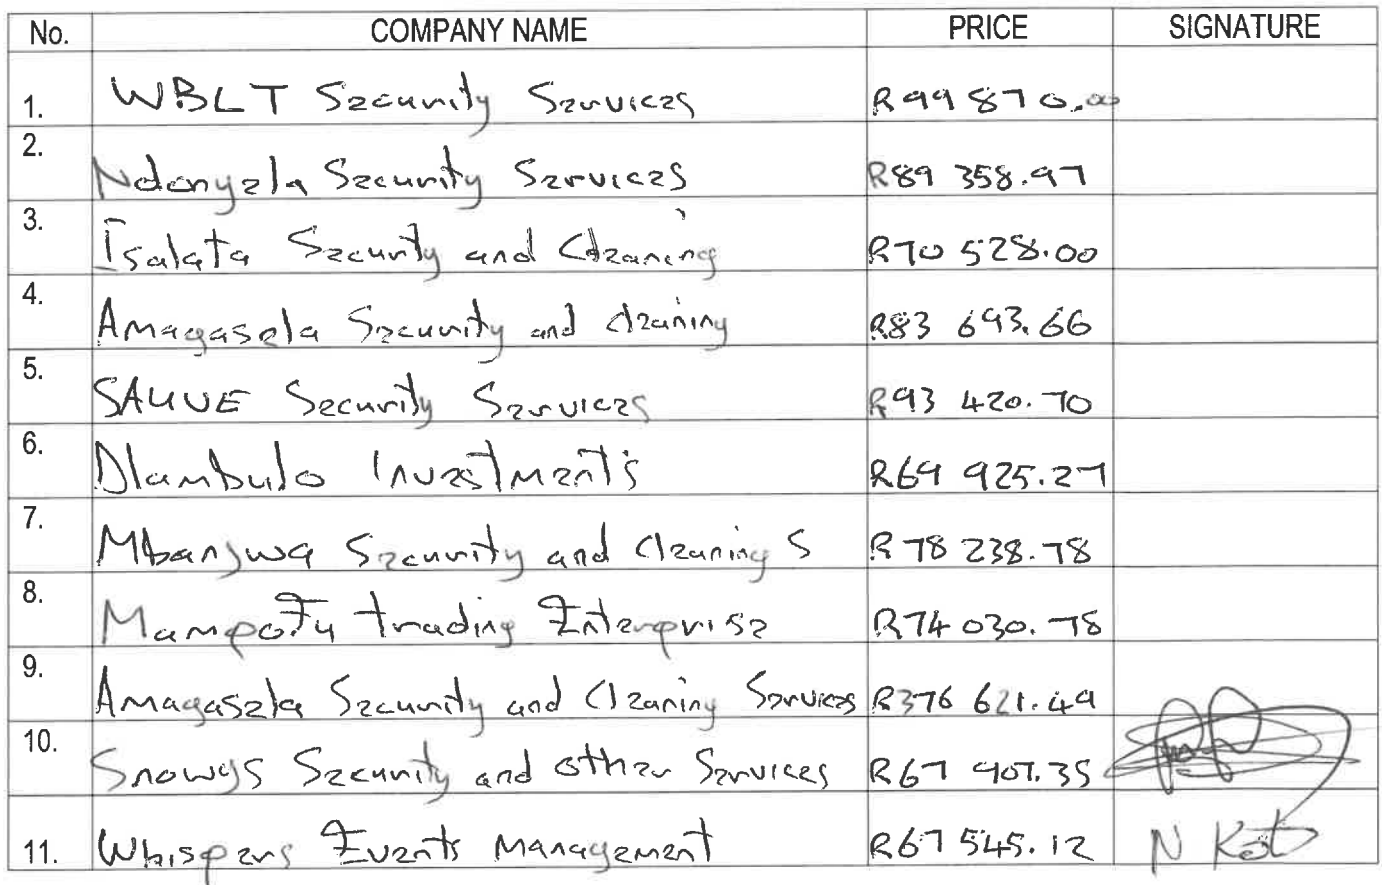 No. COMPANY NAME PRICE SIGNATURE
1. WBLT Security Services R99 870.00
2. Ndonyela Security Services R89 358.97
3. Isalata Security and Cleaning R70 528.00
4. Amagasela Security and cleaning R83 693.66
5. SAUVE Security Services R93 420.70
6. Dlambulo Investments R69 925.27
7. Mbanjwa Security and Cleaning S R78 238.78
8. Mampofu trading Enterprise R74 030.78
9. Amagasela Security and Cleaning Services R376 621.49
10. Snowys Security and other Services R67 907.35
11. Whispers Events Management R67 545.12 N